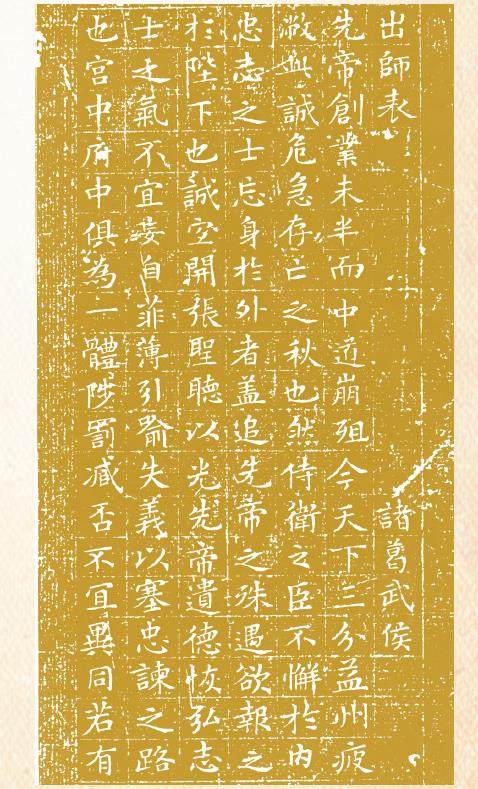 出師表　諸葛武侯
先帝創業未半而中道崩殂今天下三分益州疲
敝此誠危急存亡之秋也然侍衛之臣不懈於內
忠志之士忘身於外者蓋追先帝之殊遇欲報之
於陛下也誠宜開張聖聽以光先帝遺德恢弘志
士之氣不宜妄自菲薄引喻失義以塞忠諫之路
也宮中府中俱為一體陟罰臧否不宜異同若有